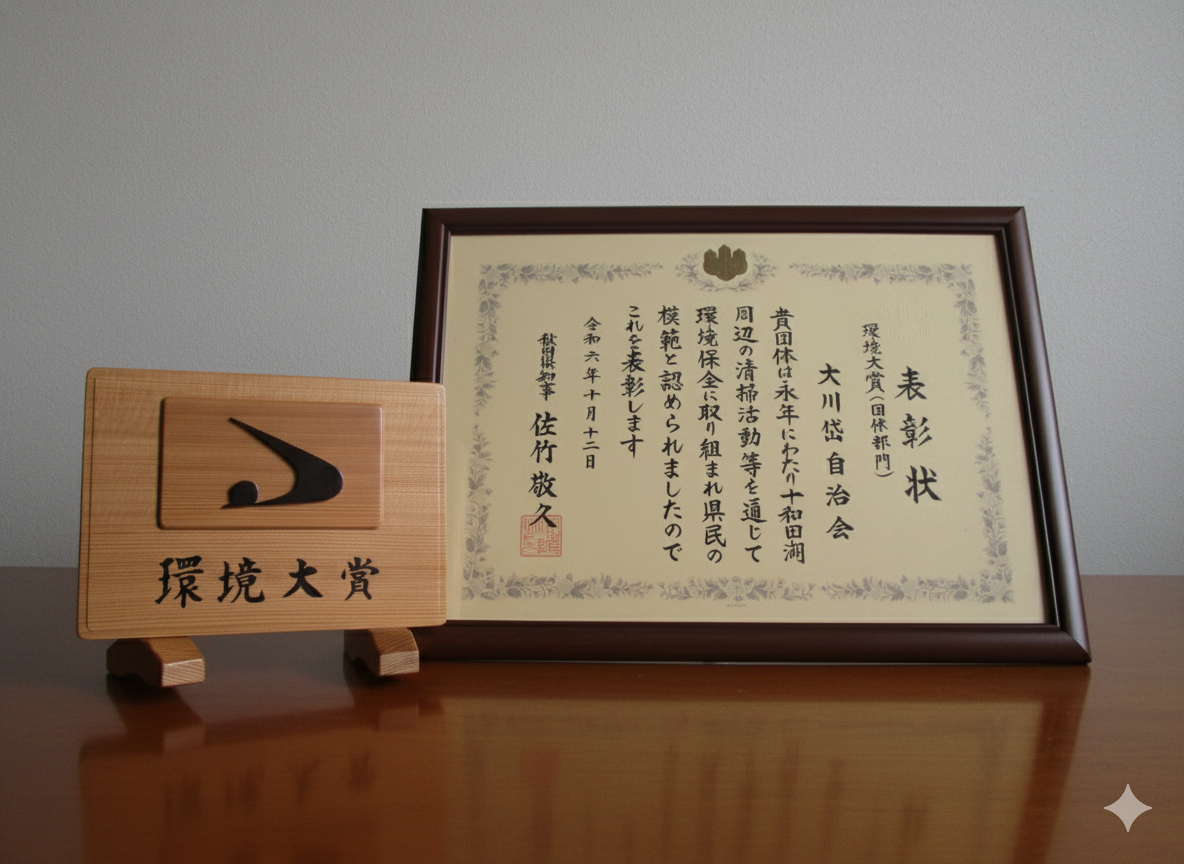 表彰状
環境大賞(団体部門)
大川岱自治会
貴団体は永年にわたり十和田湖
周辺の清掃活動等を通じて
環境保全に取り組まれ県民の
模範と認められましたので
これを表彰します
令和六年十月十二日
秋田県知事 佐竹敬久
環境大賞